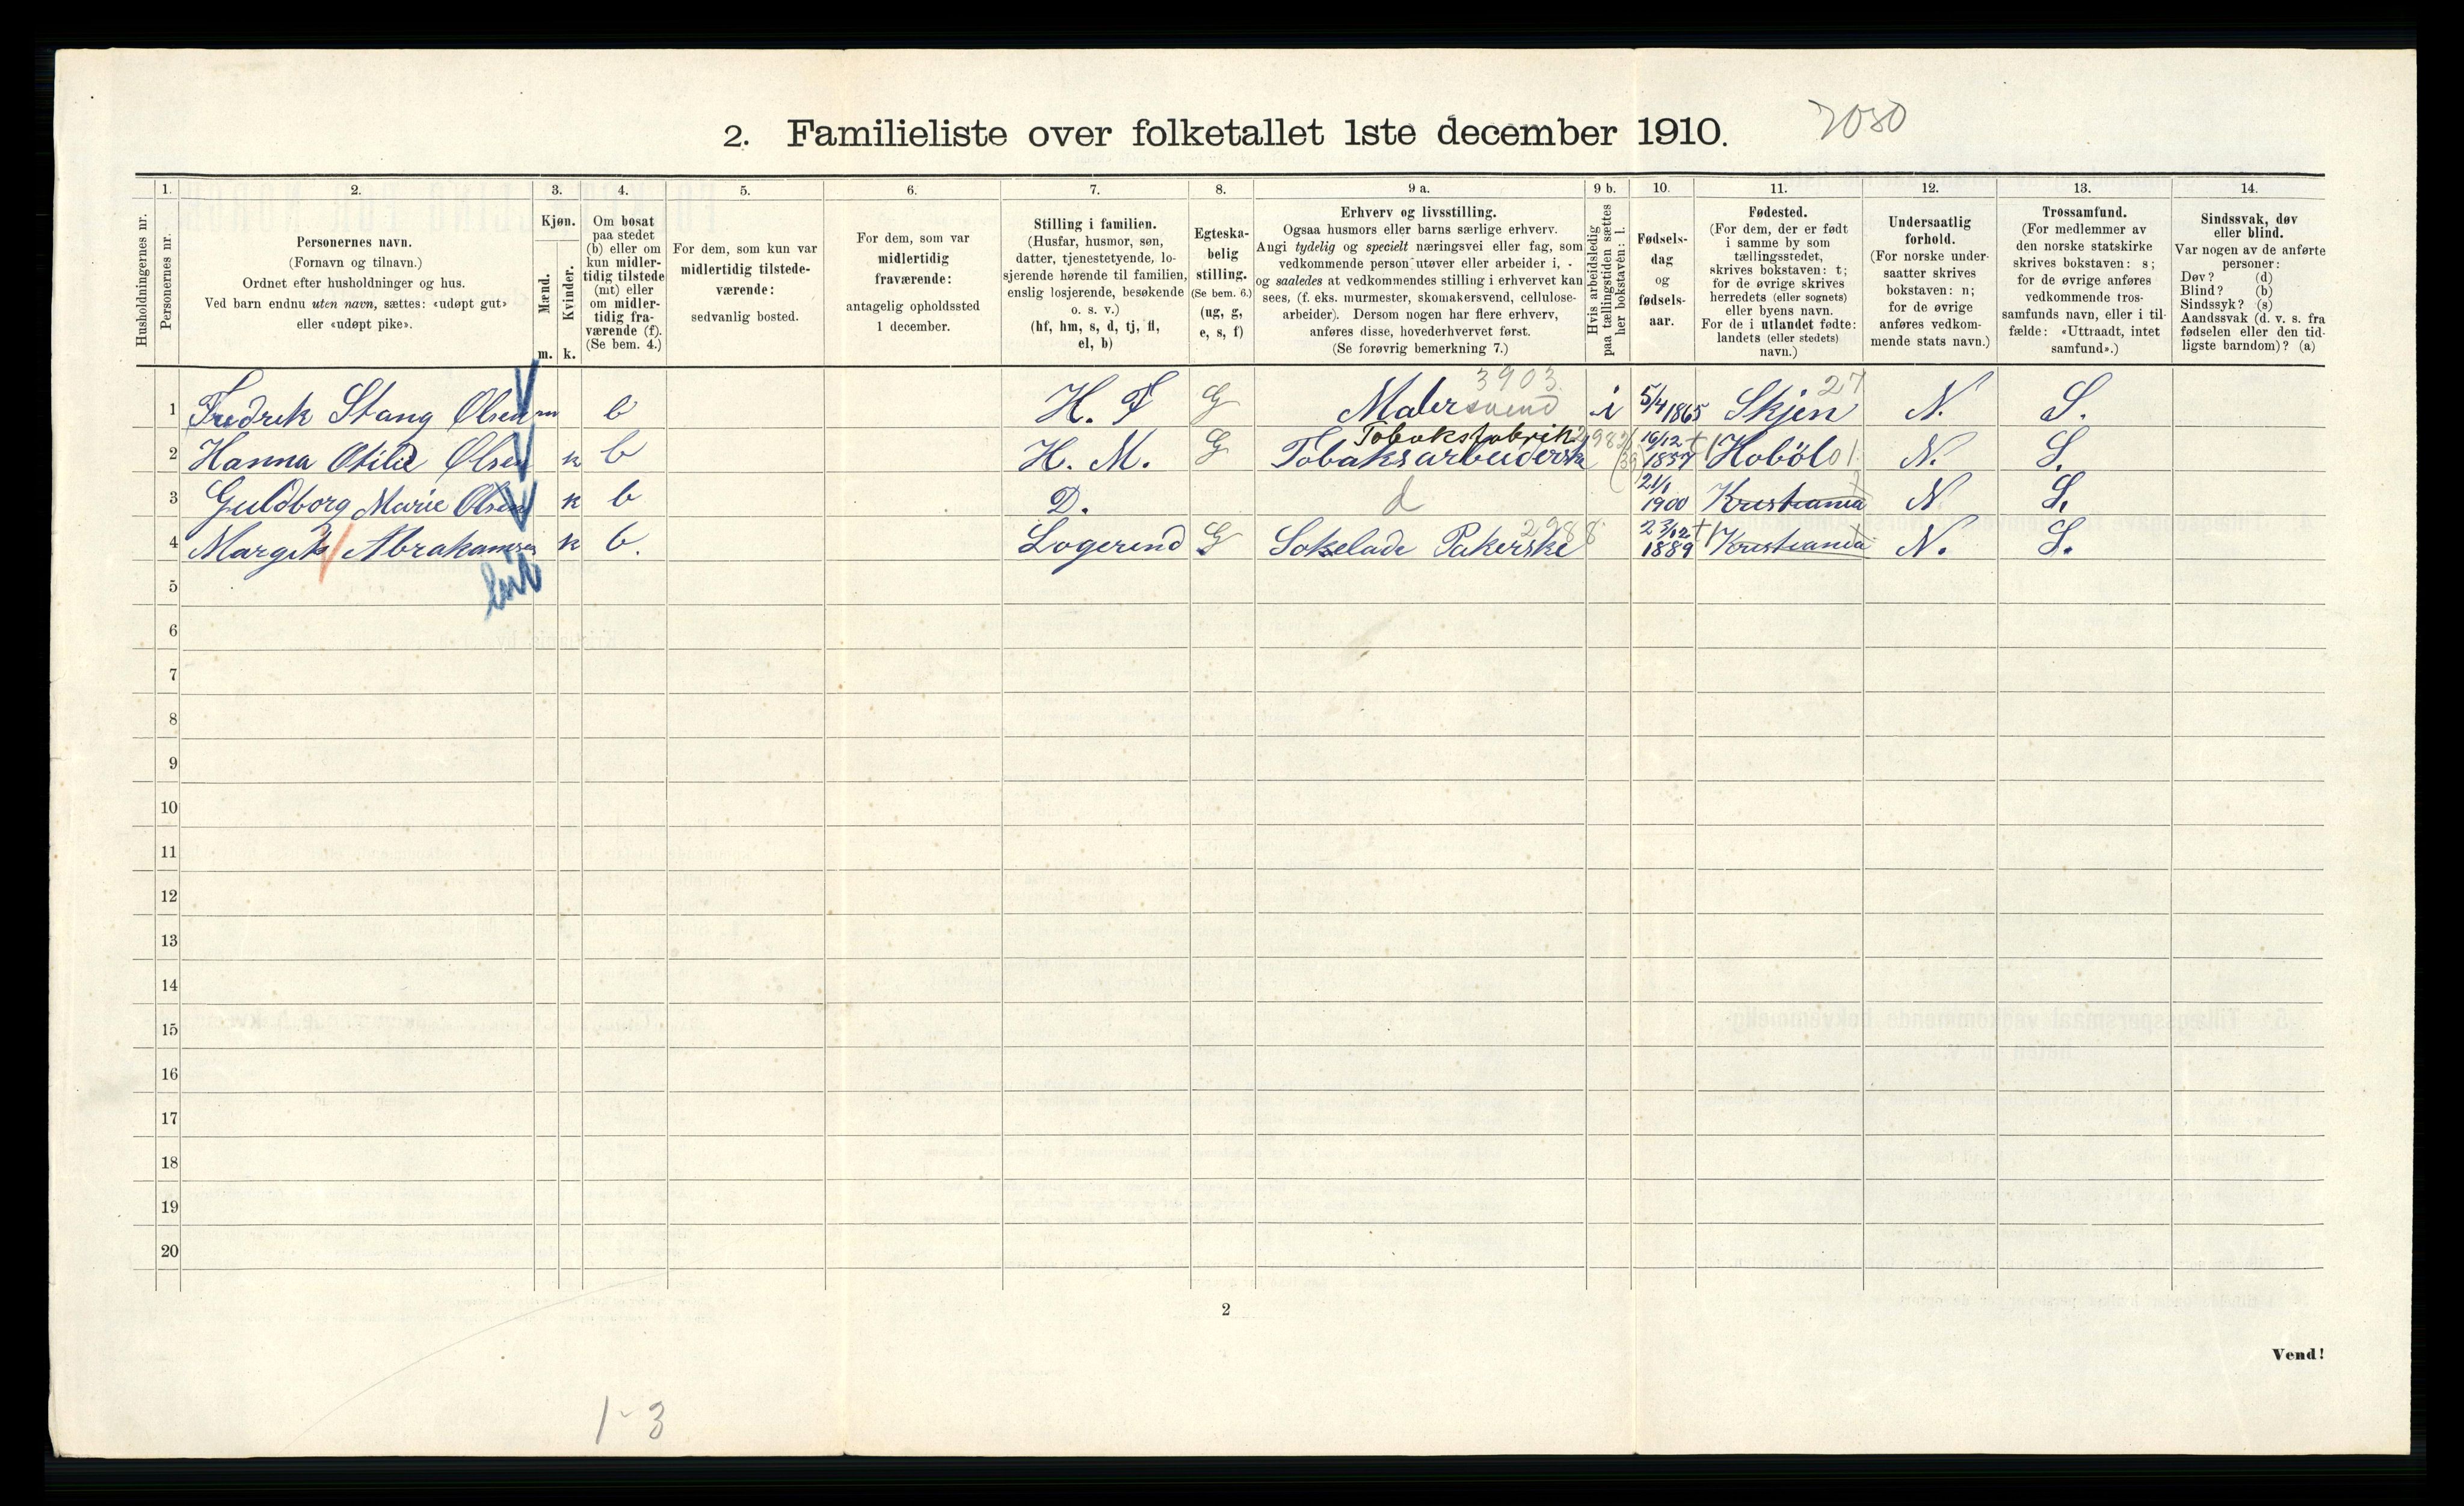 2. Familieliste over folketallet 1ste december 1910.
Husholdningernes nr.
1. Personernes nr.
2. Personernes navn. (Fornavn og tilnavn.) Ordnet efter husholdninger og hus. Ved barn endnu uten navn, sættes: «udøpt gut» eller «udøpt pike».
3. Kjøn. Mænd. m. Kvinder. k.
4. Om bosat paa stedet (b) eller om kun midlertidig tilstede (mt) eller om midlertidig fraværende (f). (Se bem. 4.)
5. For dem, som kun var midlertidig tilstedeværende: sedvanlig bosted.
6. For dem, som var midlertidig fraværende: antagelig opholdssted 1 december.
7. Stilling i familien. (Husfar, husmor, søn, datter, tjenestetyende, losjerende hørende til familien, enslig losjerende, besøkende o. s. v.) (hf, hm, s, d, tj, fl, el, b)
8. Egteskabelig stilling. (Se bem. 6.) (ug, g, e, s, f)
9 a. Erhverv og livsstilling. Ogsaa husmors eller barns særlige erhverv. Angi tydelig og specielt næringsvei eller fag, som vedkommende person utøver eller arbeider i, og saaledes at vedkommendes stilling i erhvervet kan sees, (f. eks. murmester, skomakersvend, cellulosearbeider). Dersom nogen har flere erhverv, anføres disse, hovederhvervet først. (Se forøvrig bemerkning 7.)
9 b. Hvis arbeidsledig paa tællingstiden sættes her bokstaven: l.
10. Fødselsdag og fødselsaar.
11. Fødested. (For dem, der er født i samme by som tællingsstedet, skrives bokstaven: t; for de øvrige skrives herredets (eller sognets) eller byens navn. For de i utlandet fødte: landets (eller stedets) navn.)
12. Undersaatlig forhold. (For norske undersaatter skrives bokstaven: n; for de øvrige anføres vedkommende stats navn.)
13. Trossamfund. (For medlemmer av den norske statskirke skrives bokstaven: s; for de øvrige anføres vedkommende trossamfunds navn, eller i tilfælde: «Uttraadt, intet samfund».)
14. Sindssvak, døv eller blind. Var nogen av de anførte personer: Døv? (d) Blind? (b) Sindssyk? (s) Aandssvak (d. v. s. fra fødselen eller den tidligste barndom)? (a)
1 Fredrik Stang Olsen m b H. F G Malersvend 3903 i 5/4 1865 Skjen 27 N. S.
2 Hanna Otilie Olsen k b H. M. G Tobaksfabrik Tobaksarbeiderske 16/12 1857 Hoböl 01 N. S.
3 Guldborg Marie Olsen k b D. d 21/1 1900 Kristiania N S.
4 Margit Abrahamsen k b. Logerend G Sokelade Pakerske 2988 23/12 1889 Kristiania N. S.
5
6
7
8
9
10
11
12
13
14
15
16
17
18
19
20
2
Vend!
1-3